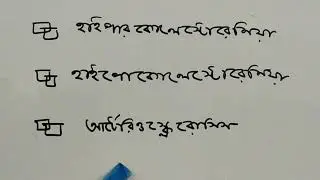 হাইপার কোলেস্টোরেমিয়া
হাইপো কোলেস্টোরেমিয়া
আর্টেরিওস্ক্লেরোসিস